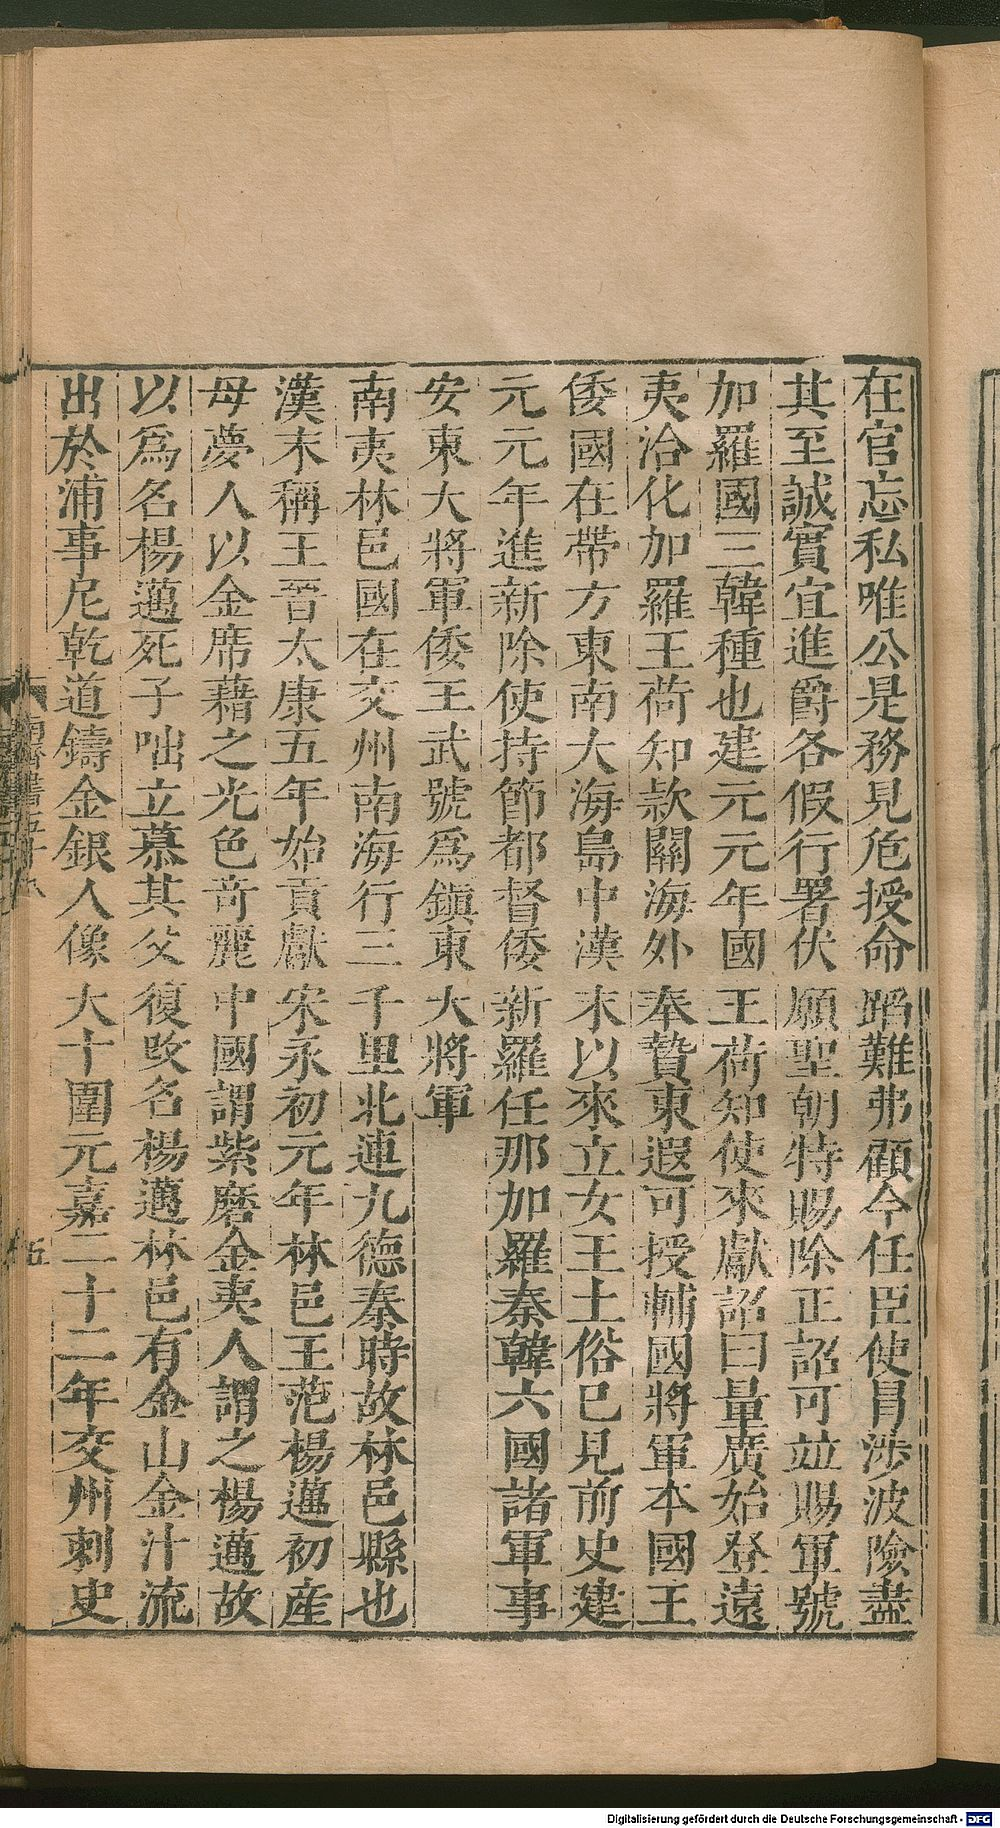 在官忘私唯公是務見危授命蹈難弗顧今任臣使冒涉波險盡
其至誠實宜進爵各假行署伏願聖朝特賜除正詔可竝賜軍號
加羅國三韓種也建元元年國王荷知使來獻詔曰量廣始登遠
夷洽化加羅王荷知款關海外奉贄東遐可授輔國將軍本國王
倭國在帶方東南大海島中漢末以來立女王土俗已見前史建
元元年進新除使持節都督倭新羅任那加羅秦韓六國諸軍事
安東大將軍倭王武號爲鎭東大將軍
南夷林邑國在交州南海行三千里北連九德秦時故林邑縣也
漢末稱王晉太康五年始貢獻宋永初元年林邑王范楊邁初産
母夢人以金席藉之光色奇麗中國謂紫磨金夷人謂之楊邁故
以爲名楊邁死子咄立慕其父復攺名楊邁林邑有金山金汁流
出於浦事尼乾道鑄金銀人像大十圍元嘉二十二年交州刺史
南齊書五十八
五
Digitalisierung gefördert durch die Deutsche Forschungsgemeinschaft - DFG